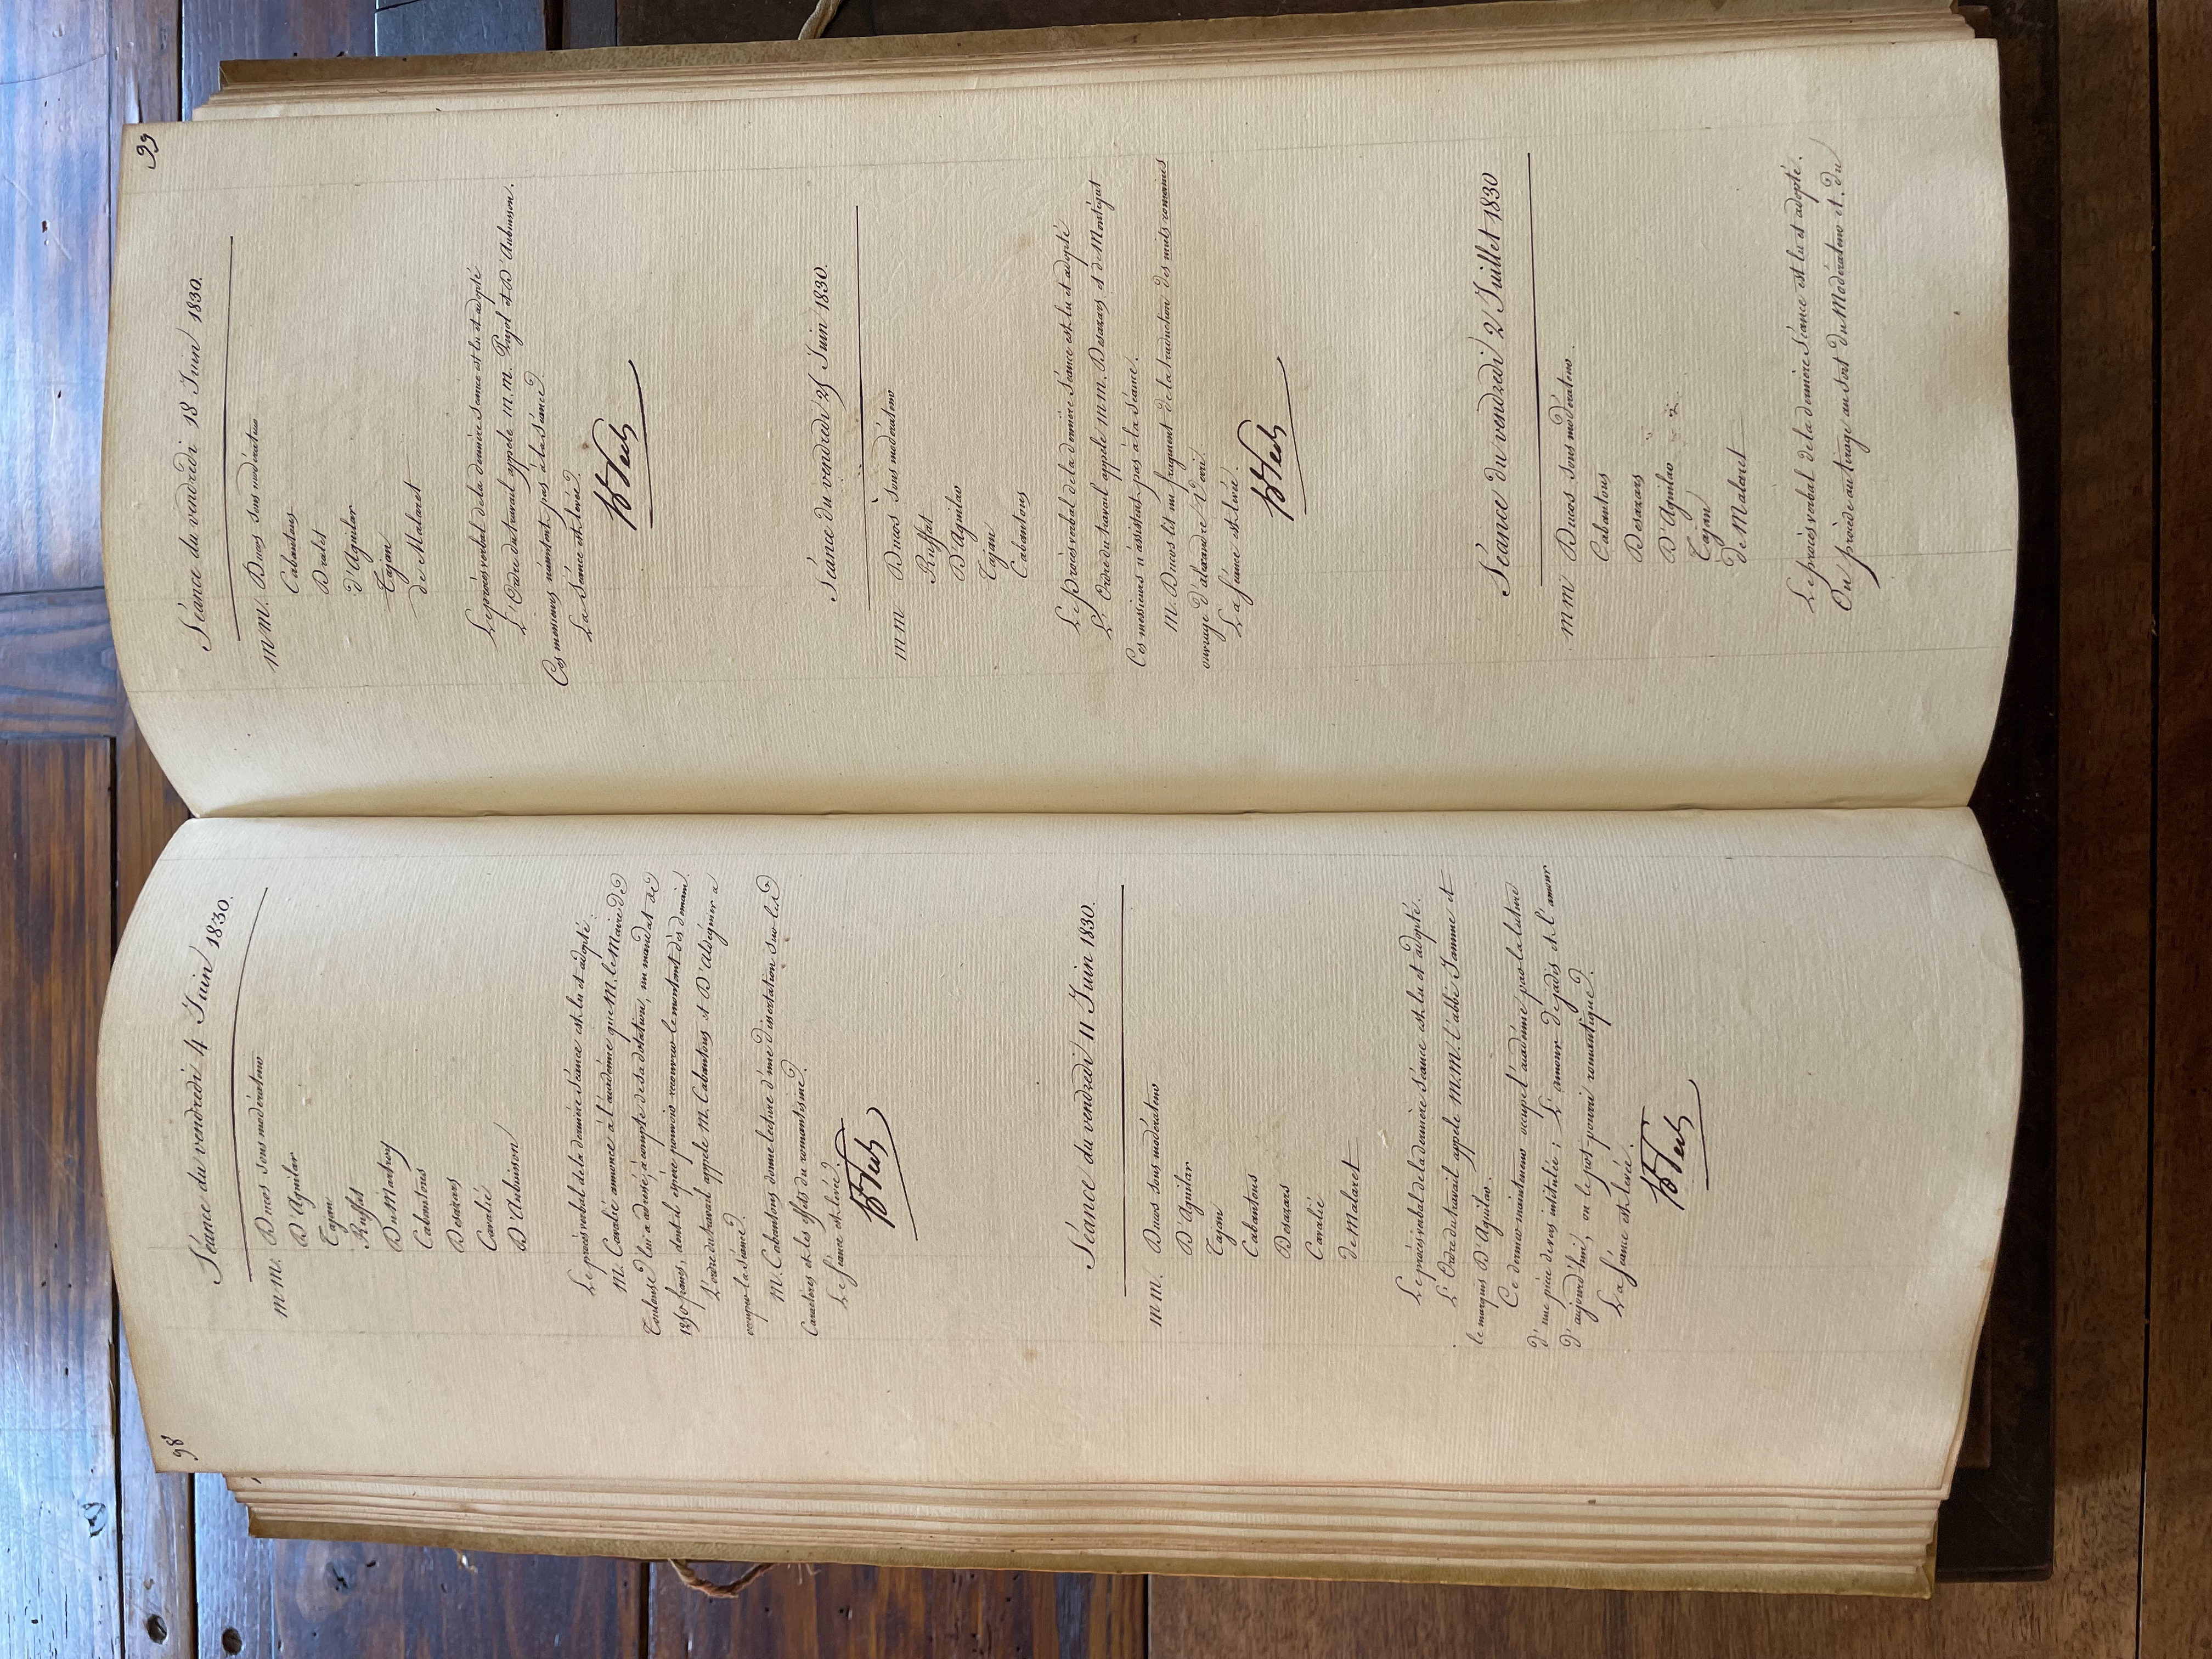 98
Séance du vendredi 4 Juin 1830.
MM. Ducos sous modérateur
D'Aguilar
Tajan
Ruffat
Du Martroy
Cabantous
Desazars
Cavalié
D'Aubuisson
Le procès verbal de la dernière séance est lu et adopté.
M. Cavalié annonce à l'académie que M. le Maire de
Toulouse lui a adressé, à compte de sa dotation, un mandat de
1250 francs, dont il espère pouvoir recouvrer le montant dès demain.
L'ordre du travail appele M. Cabantous et D'Aldéguier a
occuper la séance.
M. Cabantous donne lecture d'une dissertation sur les
Caractères et les effets du romantisme.
La séance est levée.
Séance du vendredi 11 Juin 1830.
MM. Ducos sous modérateur
D'Aguilar
Tajan
Cabantous
Desazars
Cavalié
de Malaret
Le procès verbal de la dernière séance est lu et adopté.
L'Ordre du travail appele M.M. l'abbé Jamme et
le marquis D'Aguilar.
Ce dernier mainteneur occupe l'académie par la lecture
d'une pièce de vers intitulée ; L'amour de jadis et l'amour
d'aujourd'hui, ou le pot-pourri romantique.
La séance est levée.
99
Séance du vendredi 18 Juin 1830.
MM. Ducos sous modérateur
Cabantous
Dralet
d'Aguilar
Tajan
de Malaret
Le procès verbal de la dernière séance est lu et adopté
L'Ordre du travail appele M.M. Pujol et D'Aubuisson.
Ces messieurs n'assistent pas à la séance.
La séance est levée.
Séance du vendredi 25 Juin 1830.
MM Ducos sous modérateur
Ruffat
D'Aguilar
Tajan
Cabantous
Le procès verbal de la dernière séance est lu et adopté
L'Ordre du travail appele MM. Desazars et de Montégut
Ces messieurs n'assistent pas à la séance.
M. Ducos lit un fragment de la traduction des nuits romaines
ouvrage d'alexandre Verri.
La séance est levée.
Séance du vendredi 2 Juillet 1830
MM Ducos sous modérateur.
Cabantous
Desazars
D'Aguilar
Tajan
de Malaret
Le procès verbal de la dernière séance est lu et adopté.
On procède au tirage au sort du Modérateur et du